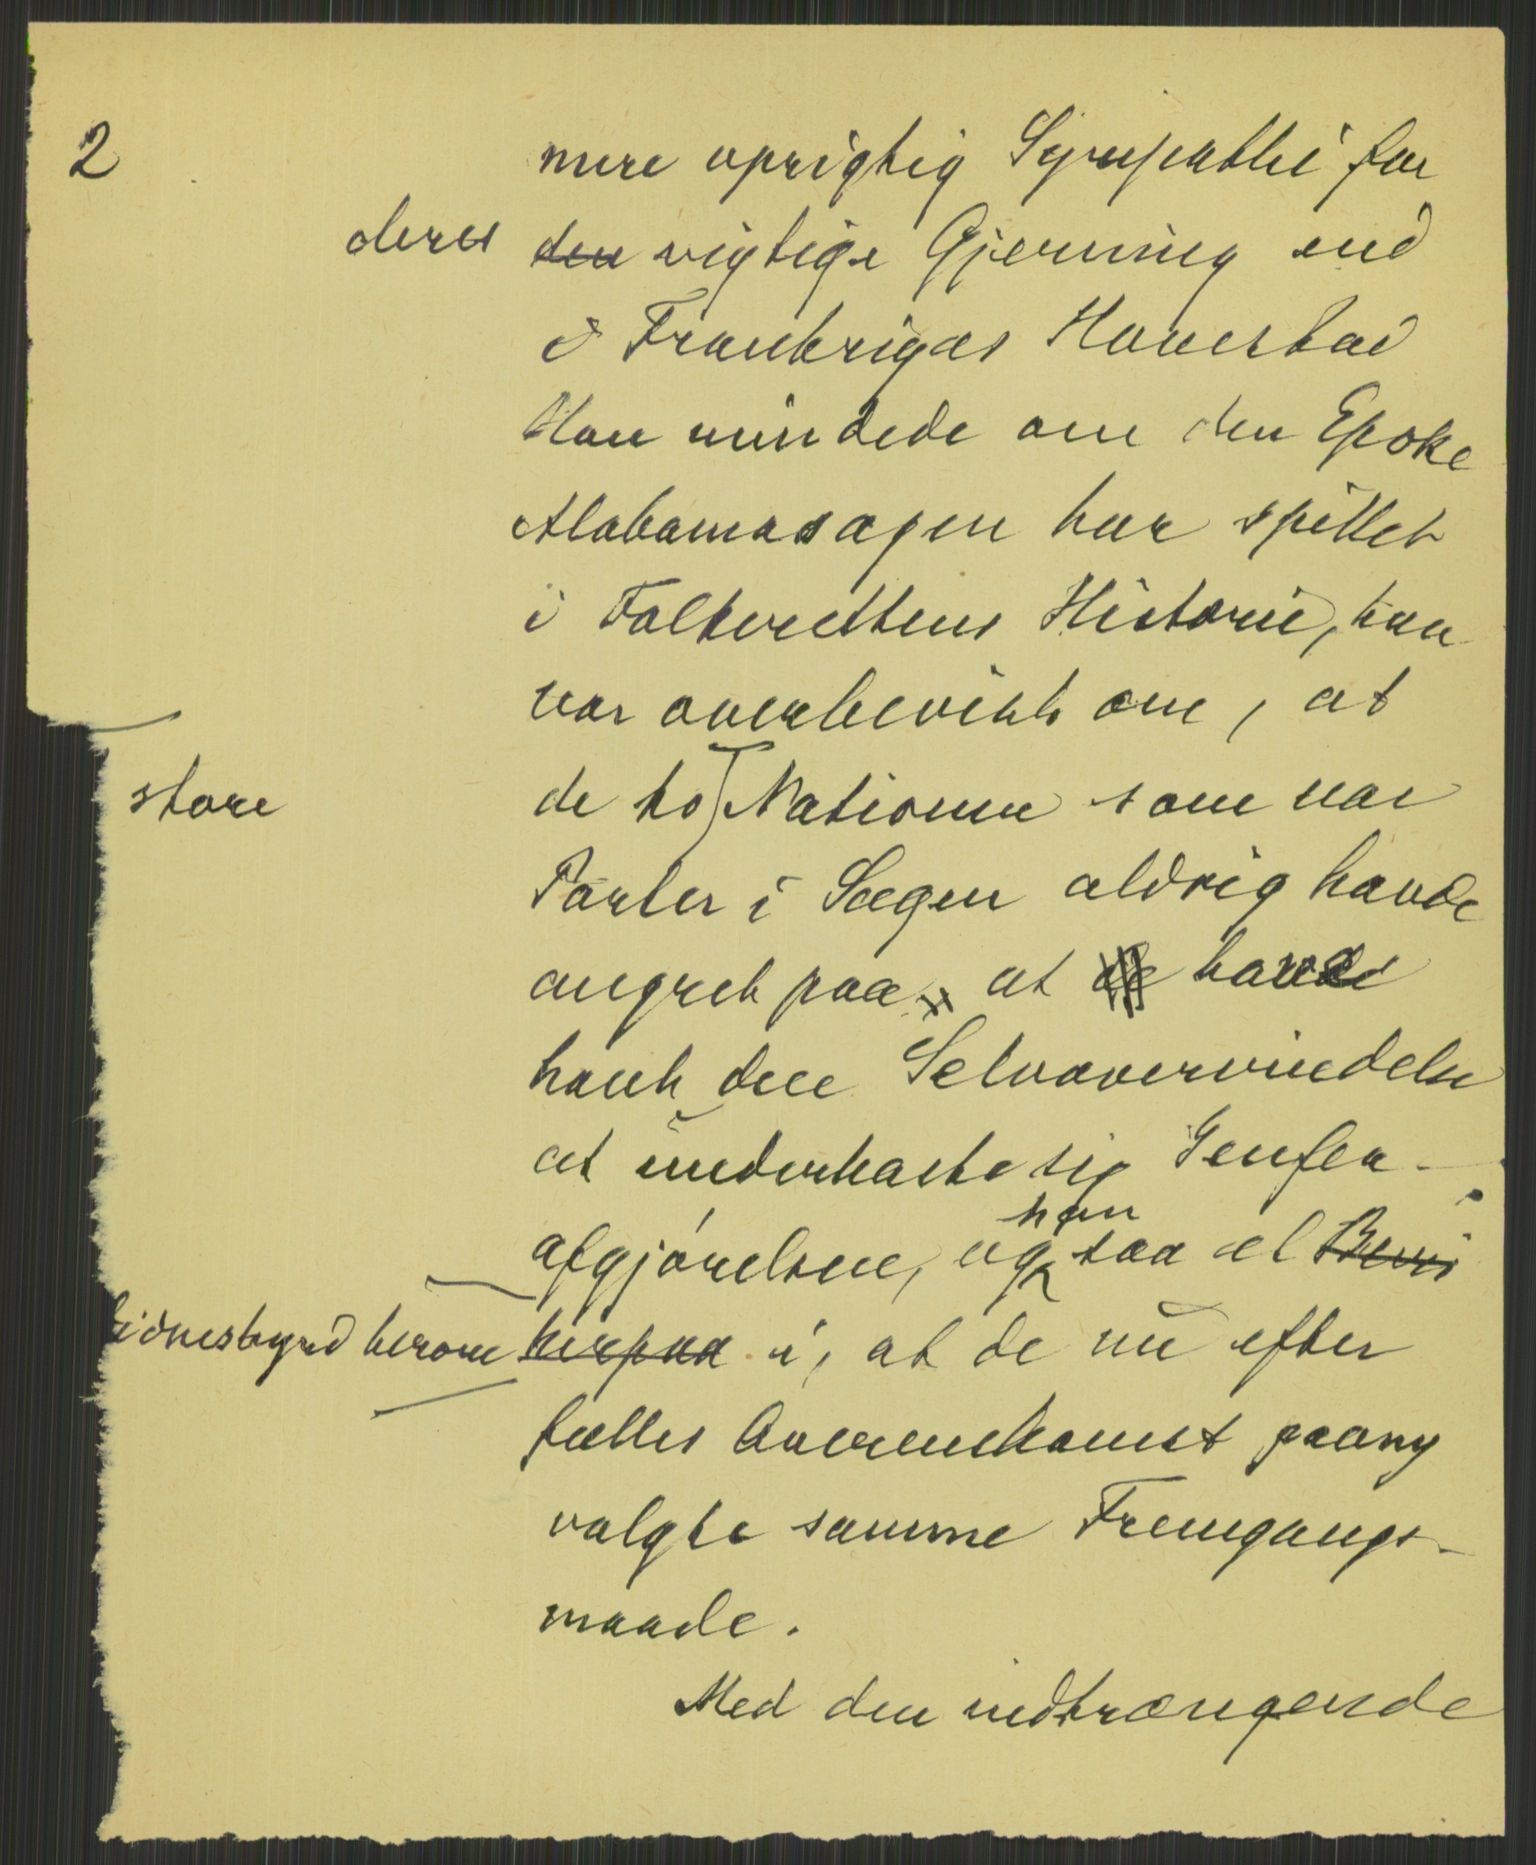 2
mere oprigtig Sympathi for
deres den vigtige Gjerning end
i Frankriges Hovestad
Han mindede om den Epoke
Alabamasagen har spillet
i Folkerettens Historie, han
var overbevist om, at
store de to Nationer som var
Parter i Sagen aldrig havde
angret paa at havde
havt den Selvovervindelse
at underkaste sig Genfer-
afgjørelsen, og han saa et Bevis
Vidnesbyrd herom herpaa i, at de nu efter
fælles Overenskomst paany
valgte samme Fremgangs-
maade.
Med den indtrængende